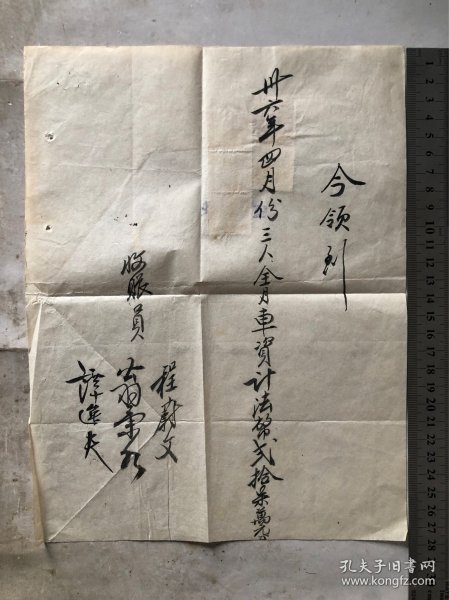 今領到
卅六年四月份三人全月車資計法幣弍拾柒萬元
收賬員
程蔚文
翁
譚進夫
孔夫子旧书网
www.kongfz.com
1
2
3
4
5
6
7
8
9
10
11
12
13
14
15
16
17
18
19
20
21
22
23
24
25
26
27
28